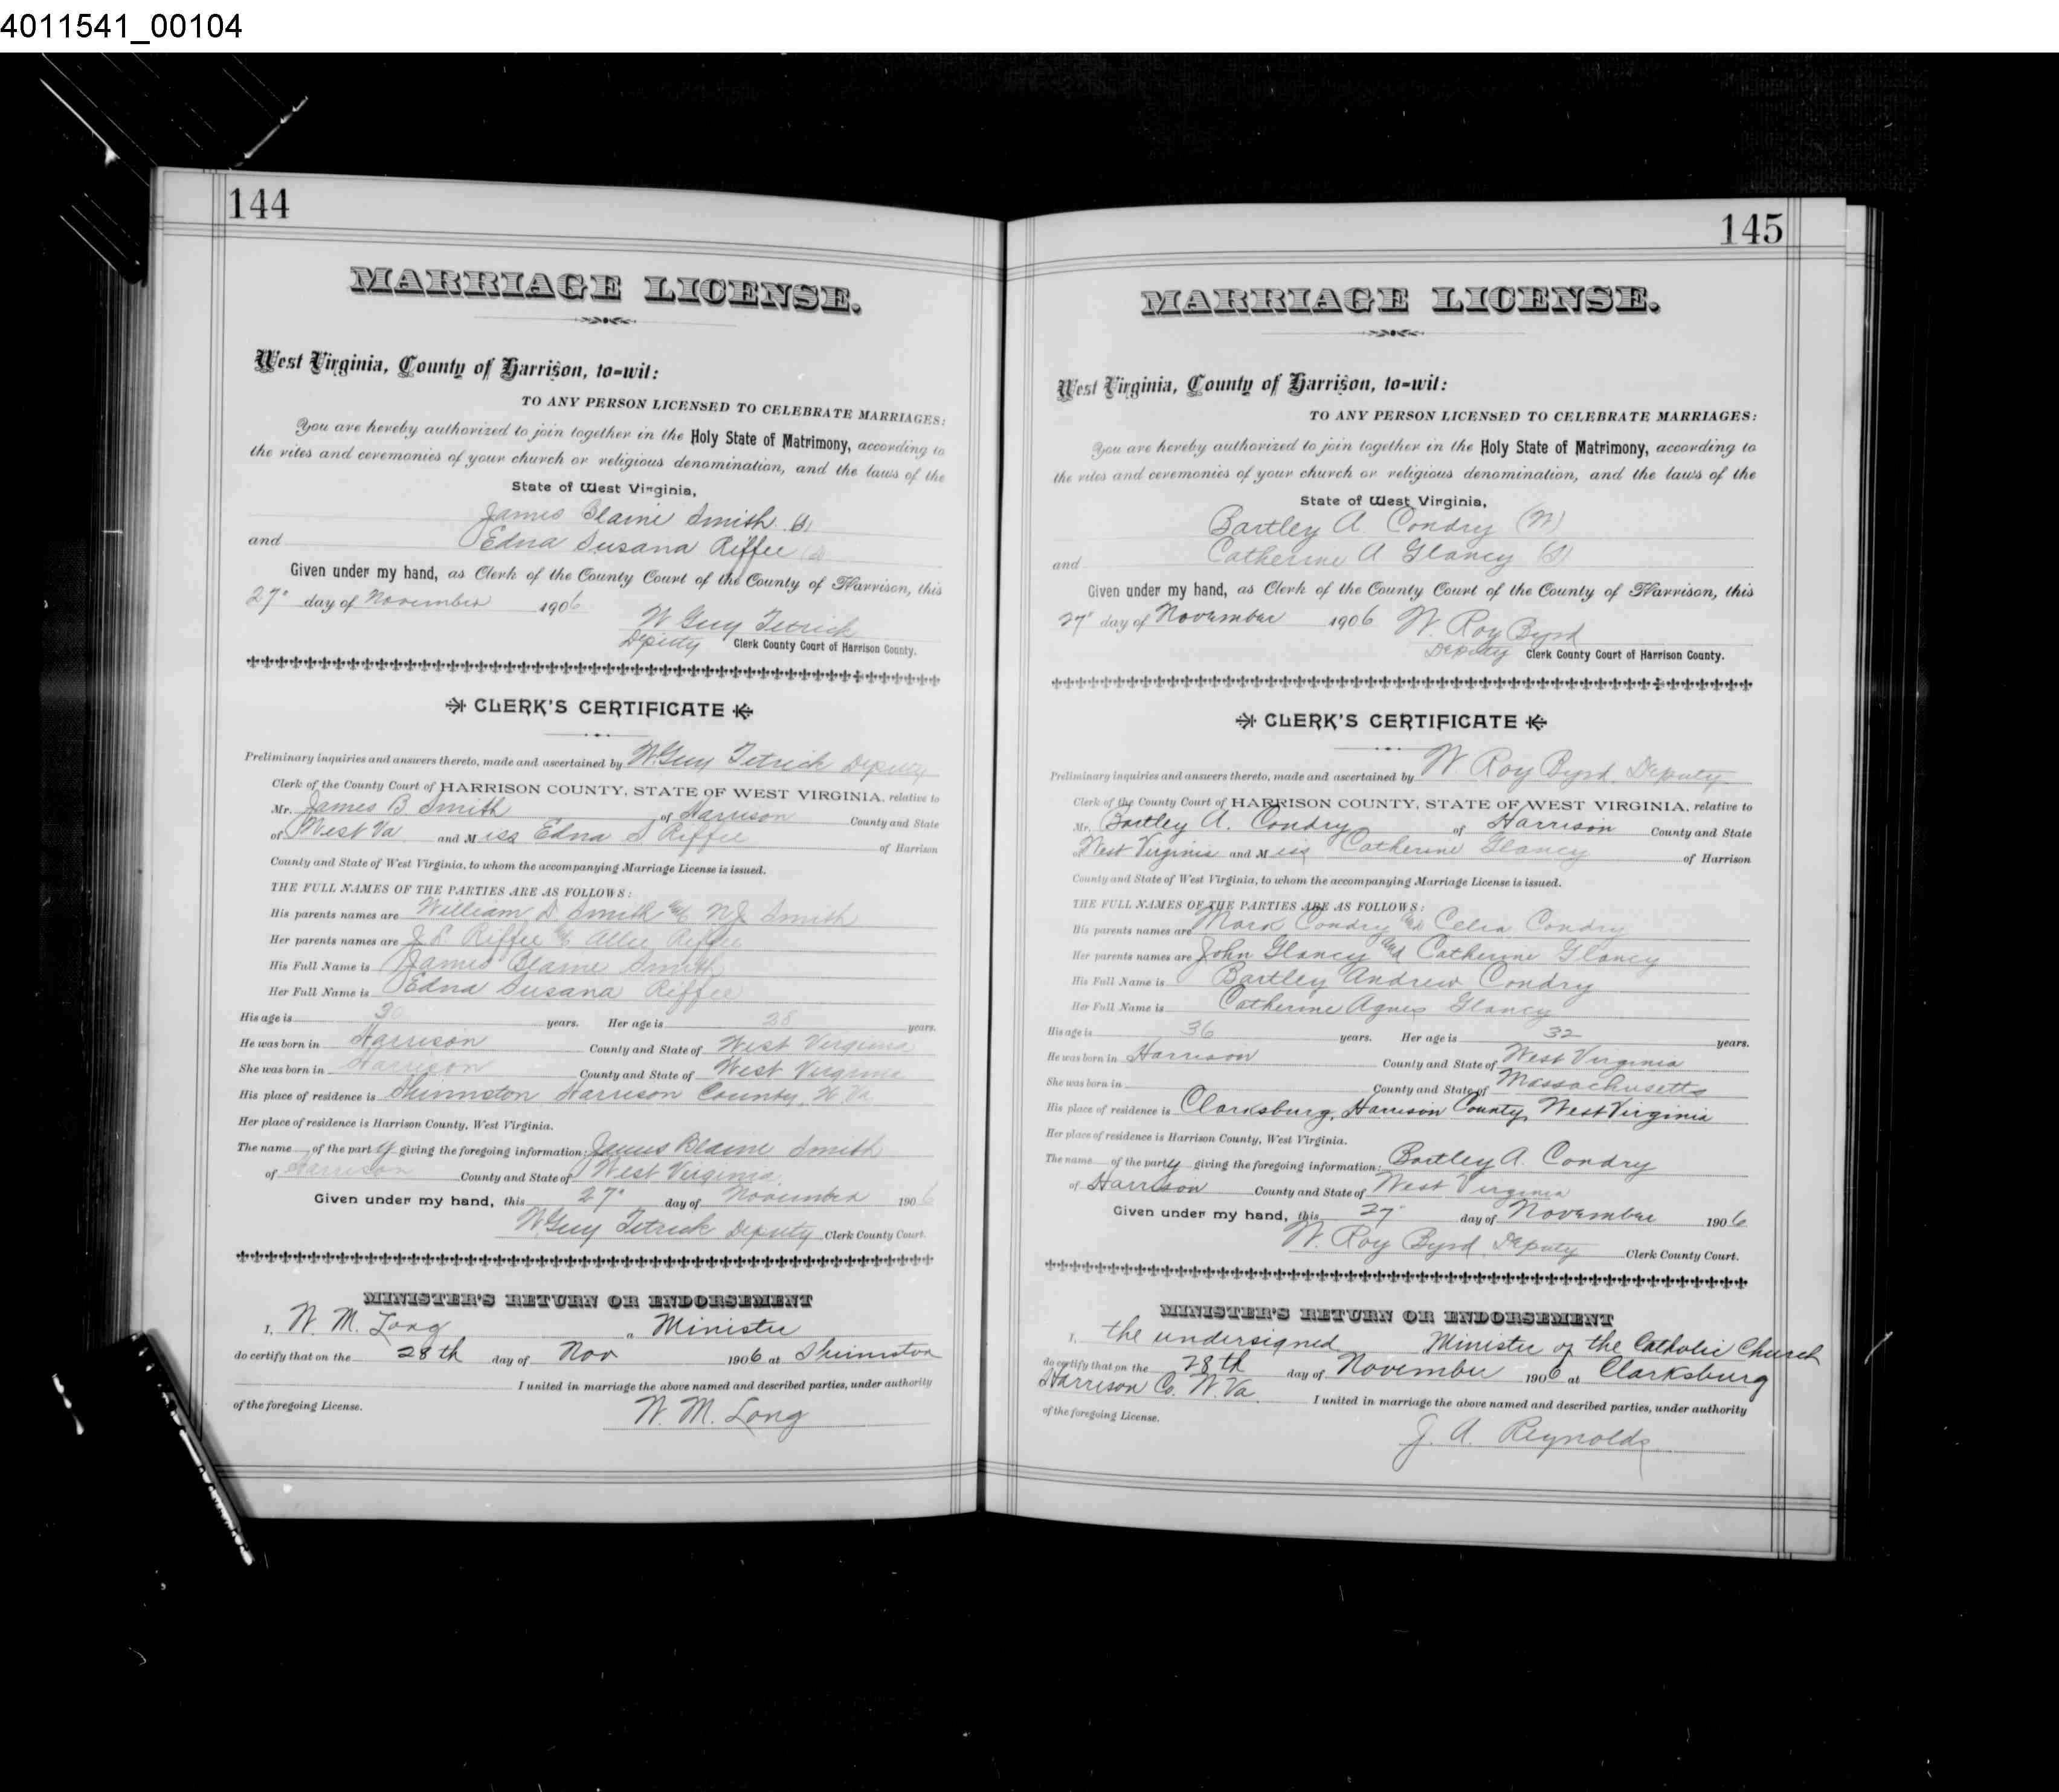 4011541_00104
144
MARRIAGE LICENSE.
West Virginia, County of Harrison, to-wit:
TO ANY PERSON LICENSED TO CELEBRATE MARRIAGES:
You are hereby authorized to join together in the Holy State of Matrimony, according to
the rites and ceremonies of your church or religious denomination, and the laws of the
State of West Virginia,
James Blaine Smith (S)
and Edna Susana Riffee (S)
Given under my hand, as Clerk of the County Court of the County of Harrison, this
27" day of November 1906
W Guy Tetrick
Deputy Clerk County Court of Harrison County.
CLERK'S CERTIFICATE
Preliminary inquiries and answers thereto, made and ascertained by W. Guy Tetrick Deputy
Clerk of the County Court of HARRISON COUNTY, STATE OF WEST VIRGINIA, relative to
Mr. James B. Smith of Harrison County and State
of West Va and Miss Edna S Riffee of Harrison
County and State of West Virginia, to whom the accompanying Marriage License is issued.
THE FULL NAMES OF THE PARTIES ARE AS FOLLOWS:
His parents names are William D. Smith and N J Smith
Her parents names are J. L. Riffee & Allie Riffee
His Full Name is James Blaine Smith
Her Full Name is Edna Susana Riffee
His age is 30 years. Her age is 28 years.
He was born in Harrison County and State of West Virginia
She was born in Harrison County and State of West Virginia
His place of residence is Shinnston Harrison County, W. Va
Her place of residence is Harrison County, West Virginia.
The name of the party giving the foregoing information: James Blaine Smith
of Harrison County and State of West Virginia.
Given under my hand, this 27" day of November 1906
W. Guy Tetrick Deputy Clerk County Court.
MINISTER'S RETURN OR ENDORSEMENT
I, W. M. Long a Minister
do certify that on the 28th day of Nov 1906 at Shinnston
I united in marriage the above named and described parties, under authority
of the foregoing License.
W. M. Long
145
MARRIAGE LICENSE.
West Virginia, County of Harrison, to-wit:
TO ANY PERSON LICENSED TO CELEBRATE MARRIAGES:
You are hereby authorized to join together in the Holy State of Matrimony, according to
the rites and ceremonies of your church or religious denomination, and the laws of the
State of West Virginia,
Bartley A. Condry (W)
and Catherine A Glancy (S)
Given under my hand, as Clerk of the County Court of the County of Harrison, this
27" day of November 1906 W. Roy Byrd
Deputy Clerk County Court of Harrison County.
CLERK'S CERTIFICATE
Preliminary inquiries and answers thereto, made and ascertained by W. Roy Byrd, Deputy
Clerk of the County Court of HARRISON COUNTY, STATE OF WEST VIRGINIA, relative to
Mr. Bartley A. Condry of Harrison County and State
of West Virginia and Miss Catherine Glancy of Harrison
County and State of West Virginia, to whom the accompanying Marriage License is issued.
THE FULL NAMES OF THE PARTIES ARE AS FOLLOWS:
His parents names are Mark Condry and Celia Condry
Her parents names are John Glancy and Catherine Glancy
His Full Name is Bartley Andrew Condry
Her Full Name is Catherine Agnes Glancy
His age is 36 years. Her age is 32 years.
He was born in Harrison County and State of West Virginia
She was born in County and State of Massachusetts
His place of residence is Clarksburg, Harrison County, West Virginia
Her place of residence is Harrison County, West Virginia.
The name of the party giving the foregoing information: Bartley A. Condry
of Harrison County and State of West Virginia
Given under my hand, this 27" day of November 1906
W. Roy Byrd, Deputy Clerk County Court.
MINISTER'S RETURN OR ENDORSEMENT
I, the undersigned Minister of the Catholic Church
do certify that on the 28th day of November 1906 at Clarksburg
Harrison Co. W. Va. I united in marriage the above named and described parties, under authority
of the foregoing License.
J. A. Reynolds